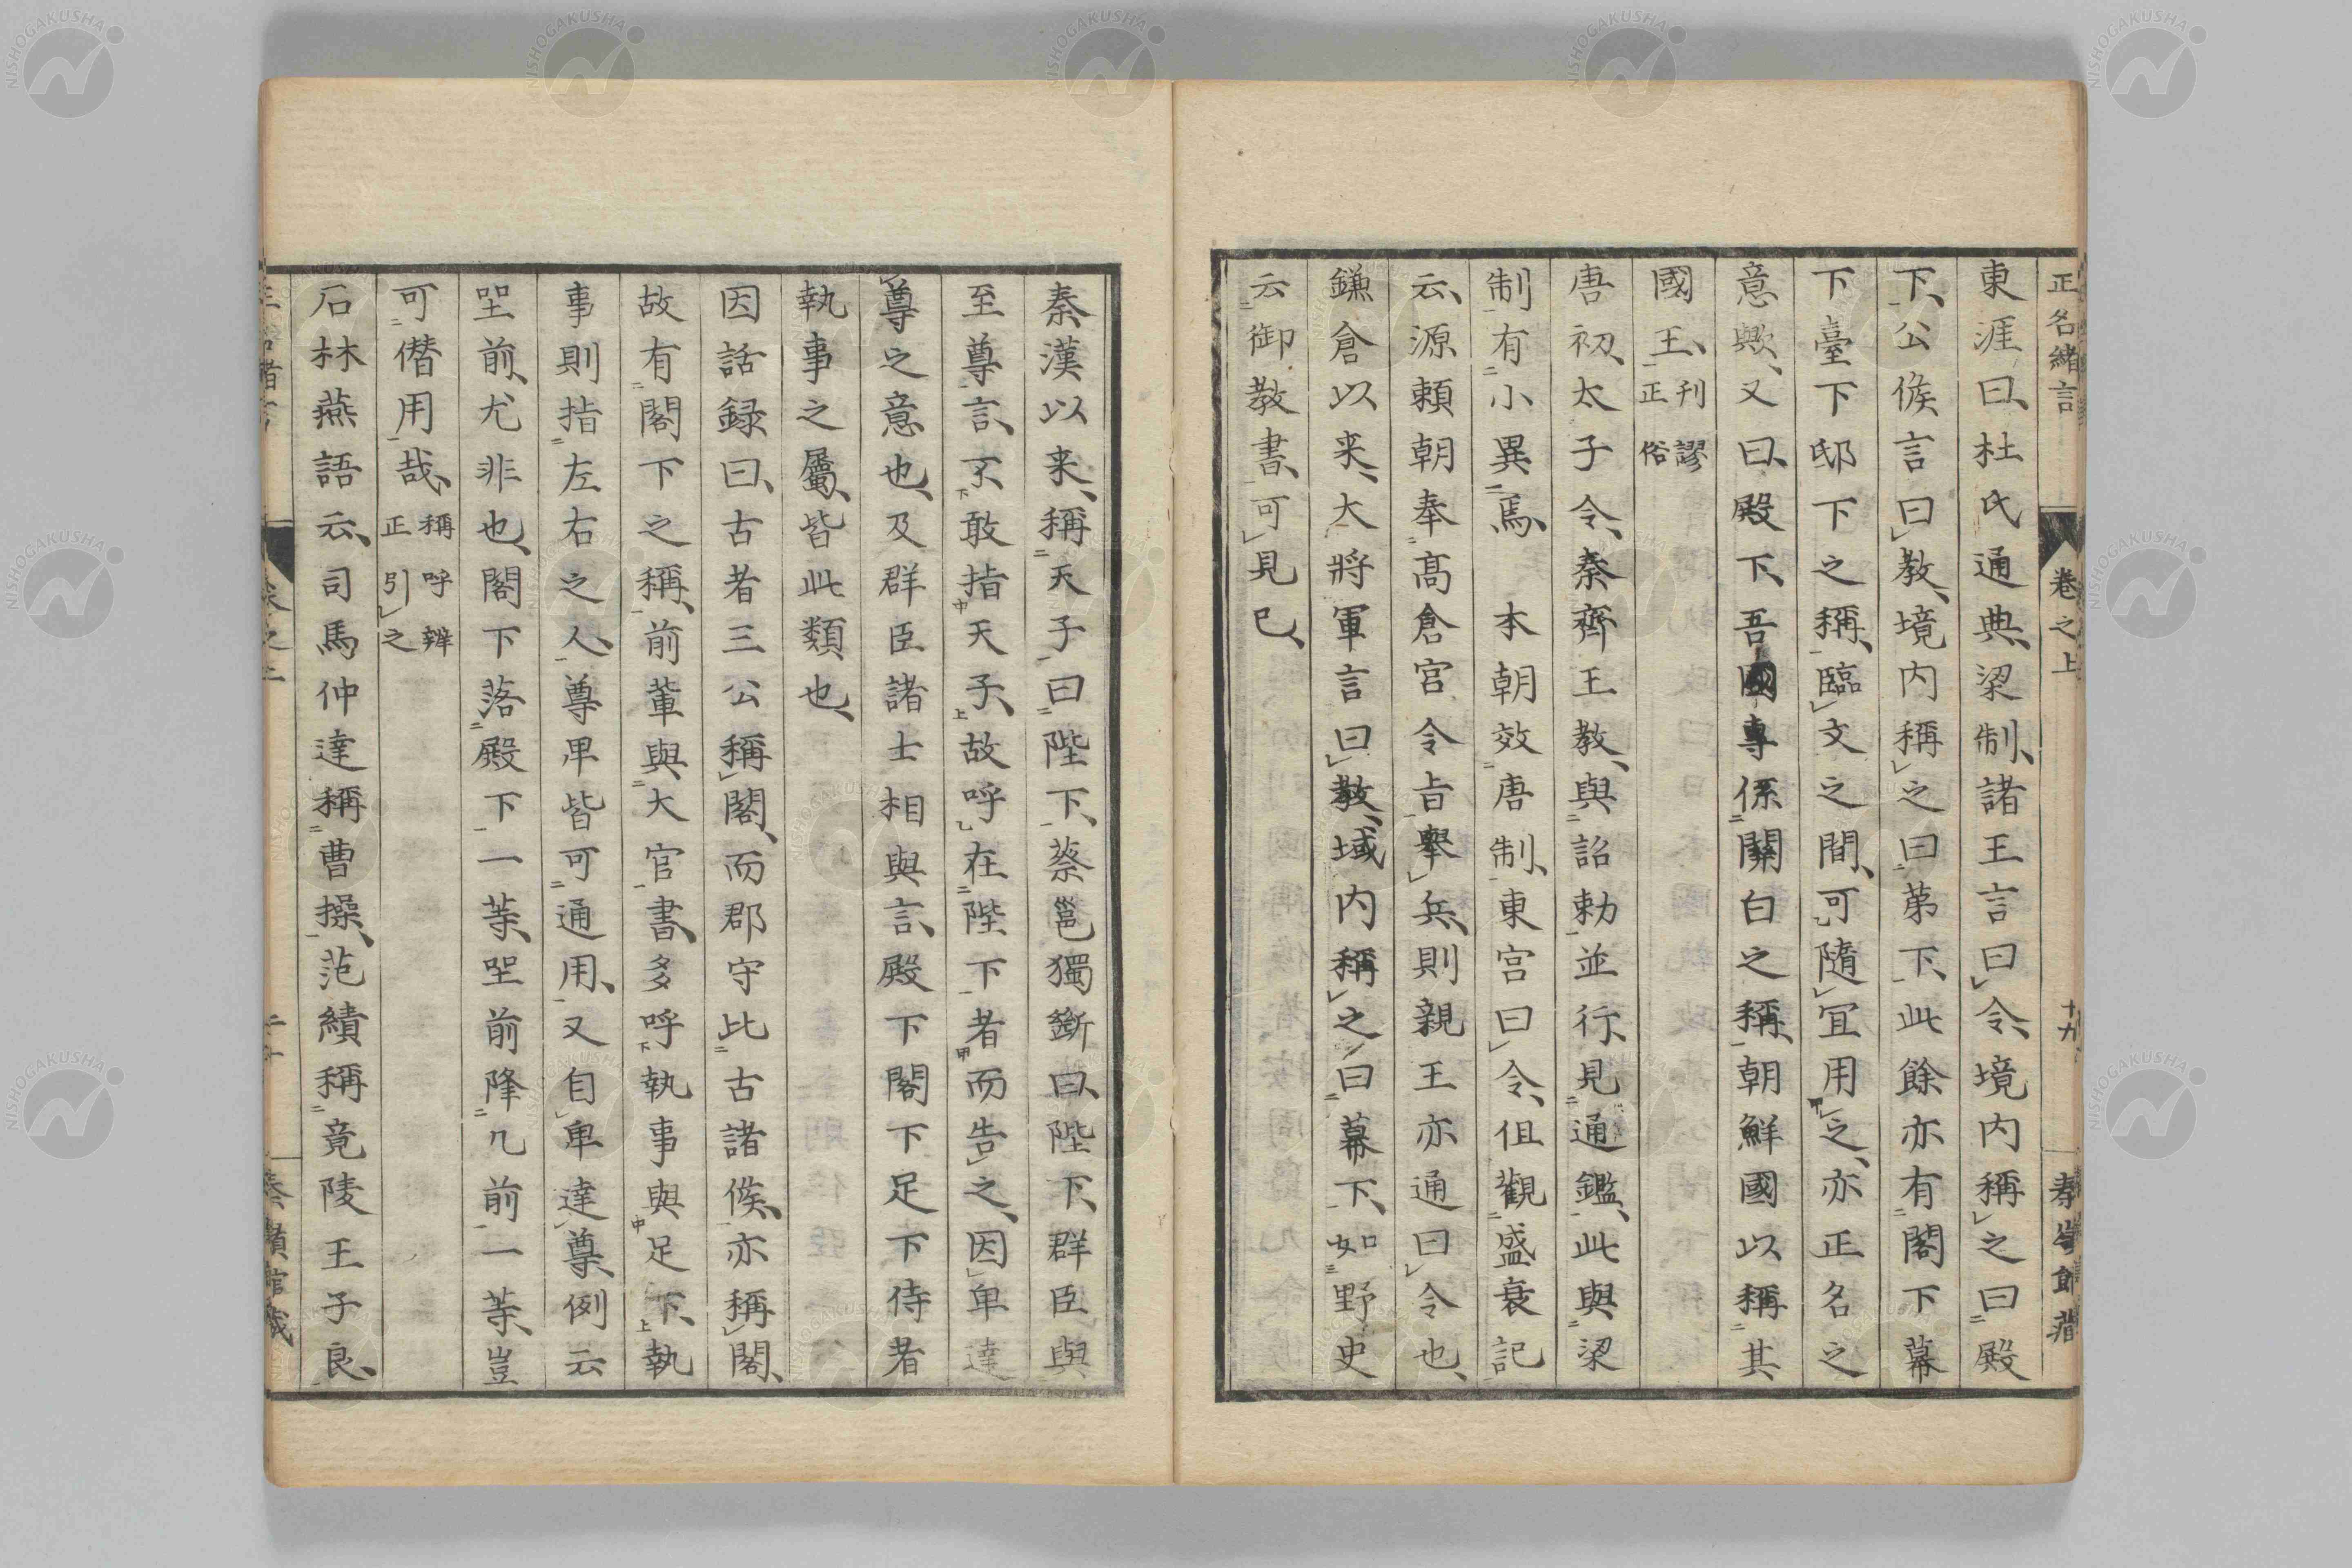 正名緒言 卷之上 十九
東涯曰、杜氏通典、梁制、諸王言曰令、境内稱之曰殿
下、公侯言曰教、境内稱之曰第下、此餘亦有閣下幕
下臺下邸下之稱、臨文之間、可隨宜用之、亦正名之
意歟、又曰、殿下、吾國專係關白之稱、朝鮮國以稱其
國王、刊謬正俗
唐初、太子令、秦齊王教、與詔勅並行、見通鑑、此與梁
制有小異焉、本朝效唐制、東宮曰令、伹觀盛衰記
云、源頼朝奉高倉宮令旨舉兵、則親王亦通曰令也、
鎌倉以来、大將軍言曰教、域内稱之曰幕下、如野史
云御教書、可見已、
秦漢以来、稱天子曰陛下、蔡邕獨斷曰、陛下、群臣與
至尊言、不敢指天子、故呼在陛下者而告之、因卑達
尊之意也、及群臣諸士相與言、殿下閣下足下侍者
執事之屬、皆此類也、
因話録曰、古者三公稱閣、而郡守比古諸侯、亦稱閣、
故有閣下之稱、前輩與大官書、多呼執事與足下、執
事則指左右之人、尊卑皆可通用、又自卑達尊、例云
坐前、尤非也、閣下落殿下一等、坐前降几前一等、豈
可僭用哉、稱呼辨正引之
石林燕語云、司馬仲達稱曹操、范縝稱竟陵王子良、